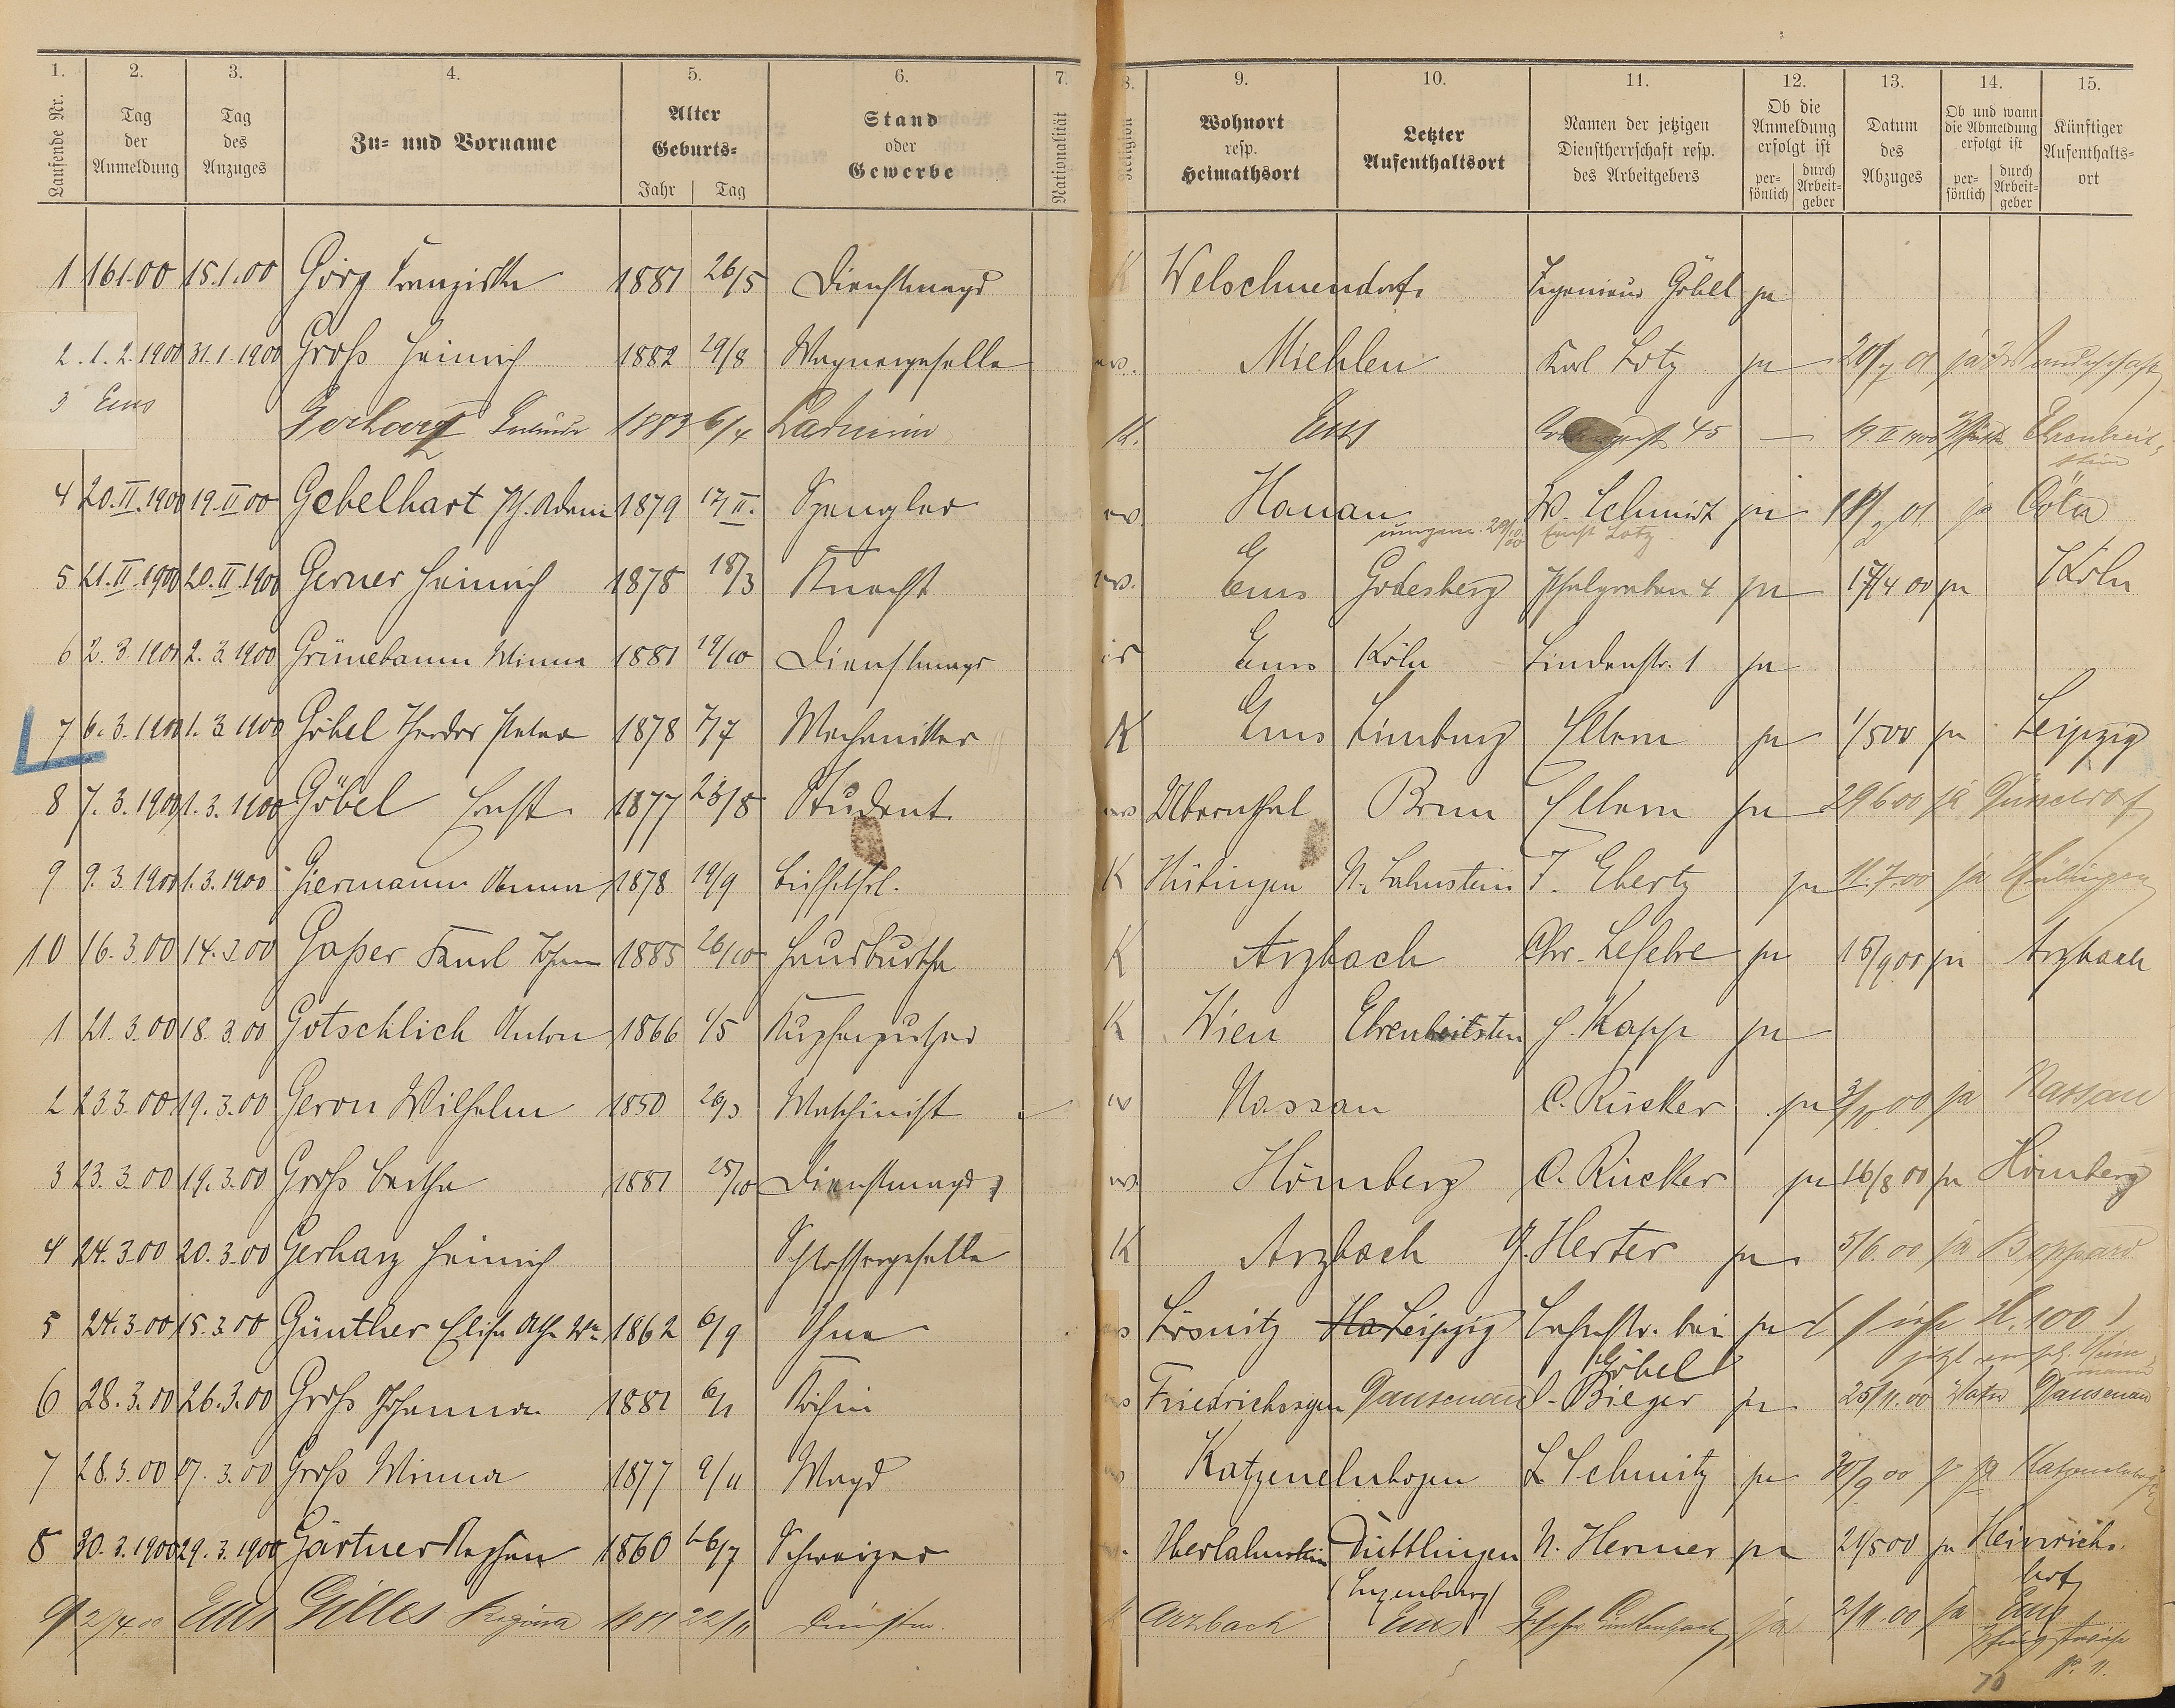 1. 2. 3. 4. 5. 6. 7. 8. 9. 10. 11. 12. 13. 14. 15.
Laufende Nr. Tag der Anmeldung Tag des Anzuges Zu- und Vorname Alter Geburts- Jahr Tag Stand oder Gewerbe Nationalität Religion Wohnort resp. Heimathsort Letzter Aufenthaltsort Namen der jetzigen Dienstherrschaft resp. des Arbeitgebers Ob die Anmeldung erfolgt ist persönlich durch Arbeitgeber Datum des Abzuges Ob und wann die Abmeldung erfolgt ist persönlich durch Arbeitgeber Künftiger Aufenthaltsort
1 16.1.00 15.1.00 Görg Franziska 1881 26/5 Dienstmagd K Welschneudorf Ingenieur Göbel ja
2. 1.2.1900 31.1.1900 Groß Heinrich 1882 29/8 Wagnergeselle ev. Miehlen Karl Lotz ja 20/7 01 ja Wanderschaft
3 Ems Gerharz 1883 6/4 Ladnerin K. Ems 45 — 19.II 1900 Ehrenbreitstein
4 20.II.1900 19.II 00 Gebelhart Ph. Adam 1879 17/II. Spengler ev. Hanau W. Schmidt ja 01. ja Cöln
umgem. 29/10 00 Ernst Lotz
5 21.II.1900 20.II.1900 Gerner Heinrich 1878 18/3 Knecht ev. Ems Godesberg Pfahlgraben 4 ja 17/4 00 ja Köln
6 2.3.1900 2.3.1900 Grünebaum Minna 1881 19/10 Dienstmagd is Ems Köln Lindenstr. 1 ja
7 6.3.1900 1.3.1900 Göbel Theodor Peter 1878 7/7 Mechaniker K Ems Limburg Eltern ja 1/5 00 ja Leipzig
8 7.3.1900 1.3.1900 Göbel Ernst 1877 23/8 Student ev Obernhof Bonn Eltern ja 29 6 00 ja Düsseldorf
9 9.3.1900 1.3.1900 Giermann Anna 1878 19/9 Büffetfrl. K Hübingen N. Lahnstein F. Ebertz ja 11.7.00 ja Hübingen
10 16.3.00 14.3.00 Gaßer Karl Johann 1885 26/10 Hausbursche K Arzbach Chr. Lefebre ja 15/9 00 ja Arzbach
1 21.3.00 18.3.00 Gotschlich Anton 1866 1/5 Kupferputzer K Wien Ehrenbreitstein H. Kapp ja
2 23.3.00 19.3.00 Geron Wilhelm 1850 26/3 Maschinist ev Nassau C. Rücker ja 00 ja Nassau
3 23.3.00 19.3.00 Groß Bertha 1881 25/10 Dienstmagd ev. Hömberg C. Rücker ja 16/8 00 ja Hömberg
4 24.3.00 20.3.00 Gerharz Heinrich Schlossergeselle K Arzbach J. Herter ja 5/6.00 ja Boppard
5 24.3.00 15.3.00 Günther Elise 1862 6/9 Ohne ev Lösnitz Leipzig Lahnstr. bei Göbel ja (siehe H. 100)
jetzt
6 28.3.00 26.3.00 Groß Johanna 1881 6/1 Köchin ev Friedrichssegen Dausenau Bieger ja 25/11.00 Vater Dausenau
7 28.3.00 27.3.00 Groß Minna 1877 9/11 Magd ev Katzenelnbogen L Schmitz ja 30/9 00 ja Katzenelnbogen
8 30.3.1900 29.3.1900 Gärtner Stephan 1860 26/7 Schweizer Oberlahnstein Düttlingen (Luxemburg) N. Hermer ja 21/5 00 ja Heinrichshof
9 2/4 00 Ems Gilles Regina 1881 22/11 K Arzbach Ems Linkenbach ja 2/11.00 ja Ems
No. 11.
70